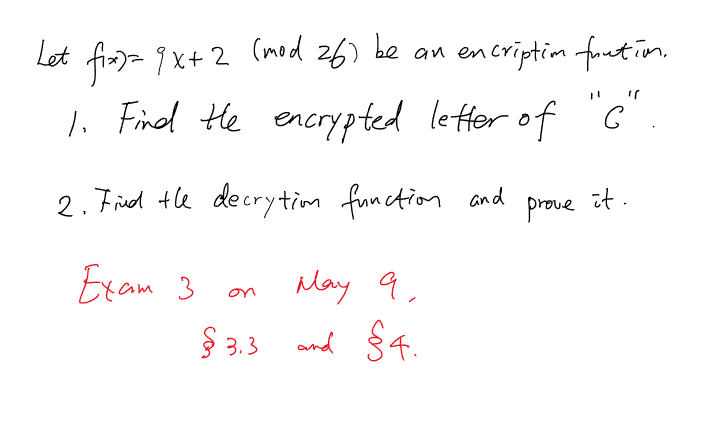 Let f(x)= 9x+2 (mod 26) be an encription function.
1. Find the encrypted letter of "C".
2. Find the decrytion function and prove it.
Exam 3 on May 9,
§ 3.3 and §4.